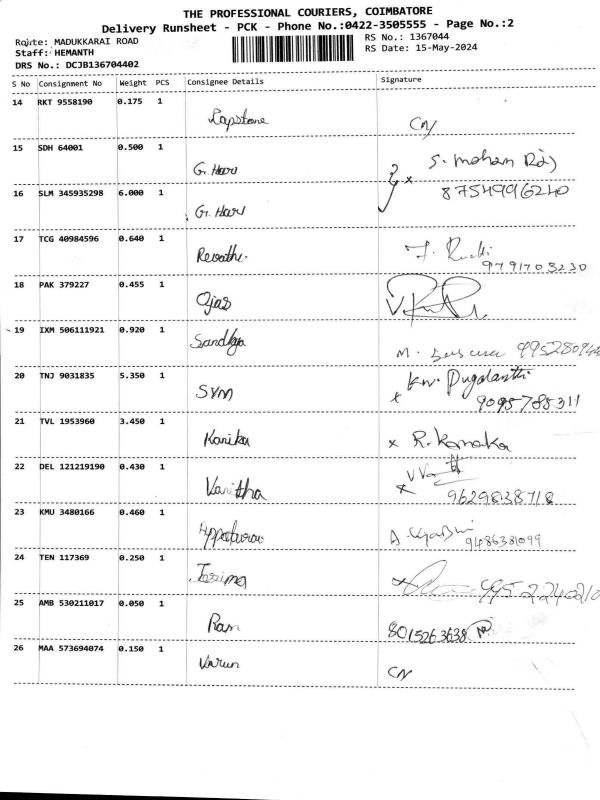 THE PROFESSIONAL COURIERS, COIMBATORE
Delivery Runsheet - PCK - Phone No.:0422-3505555 - Page No.:2
Route: MADUKKARAI ROAD
RS No.: 1367044
Staff: HEMANTH
RS Date: 15-May-2024
DRS No.: DCJB136704402
S No Consignment No Weight PCS Consignee Details Signature
14 RKT 9558190 0.175 1 Lapstone CN
15 SDH 64001 0.500 1 G. Hari S. Mohan Raj
16 SLM 345935298 6.000 1 G. Hari x 8754996240
17 TCG 40984596 0.640 1 Revathi 9791703230
18 PAK 379227 0.455 1 Ojas
19 IXM 506111921 0.920 1 Sandhya M.
20 TNJ 9031835 5.350 1 SVM x KN. Pugalanthi 9095785311
21 TVL 1953960 3.450 1 Kanika x R. Kanaka
22 DEL 121219190 0.430 1 Kavitha x 9629838718
23 KMU 3480166 0.460 1 A. 9486381099
24 TEN 117369 0.250 1 x
25 AMB 530211017 0.050 1 Ram 8015263638
26 MAA 573694074 0.150 1 Varun CN